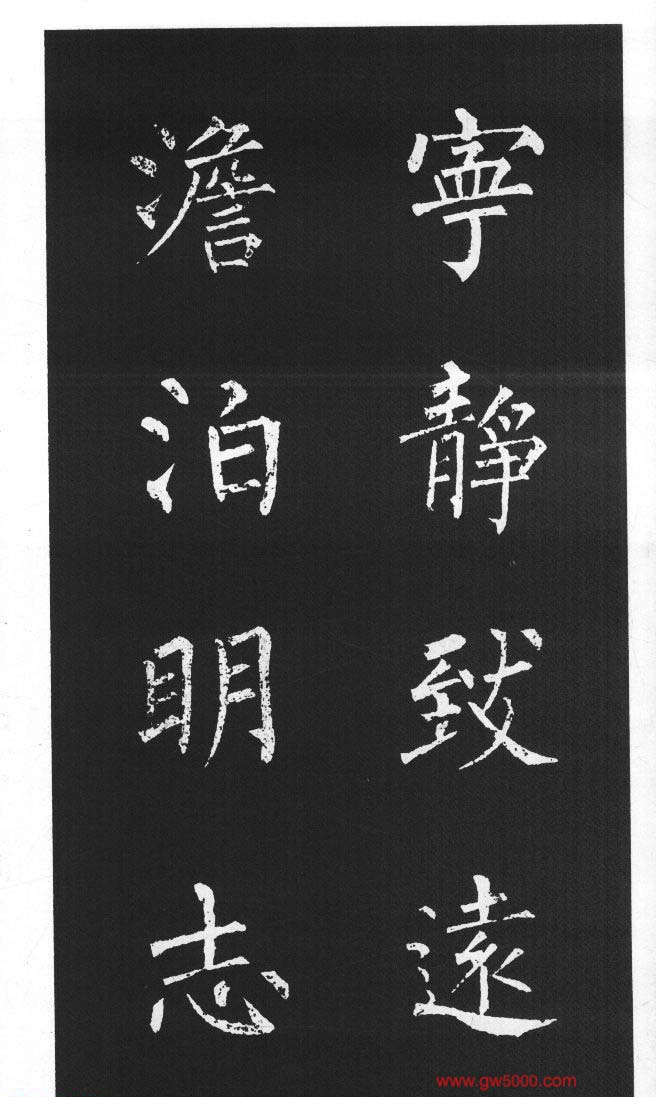 寧靜致遠
澹泊明志
www.gw5000.com